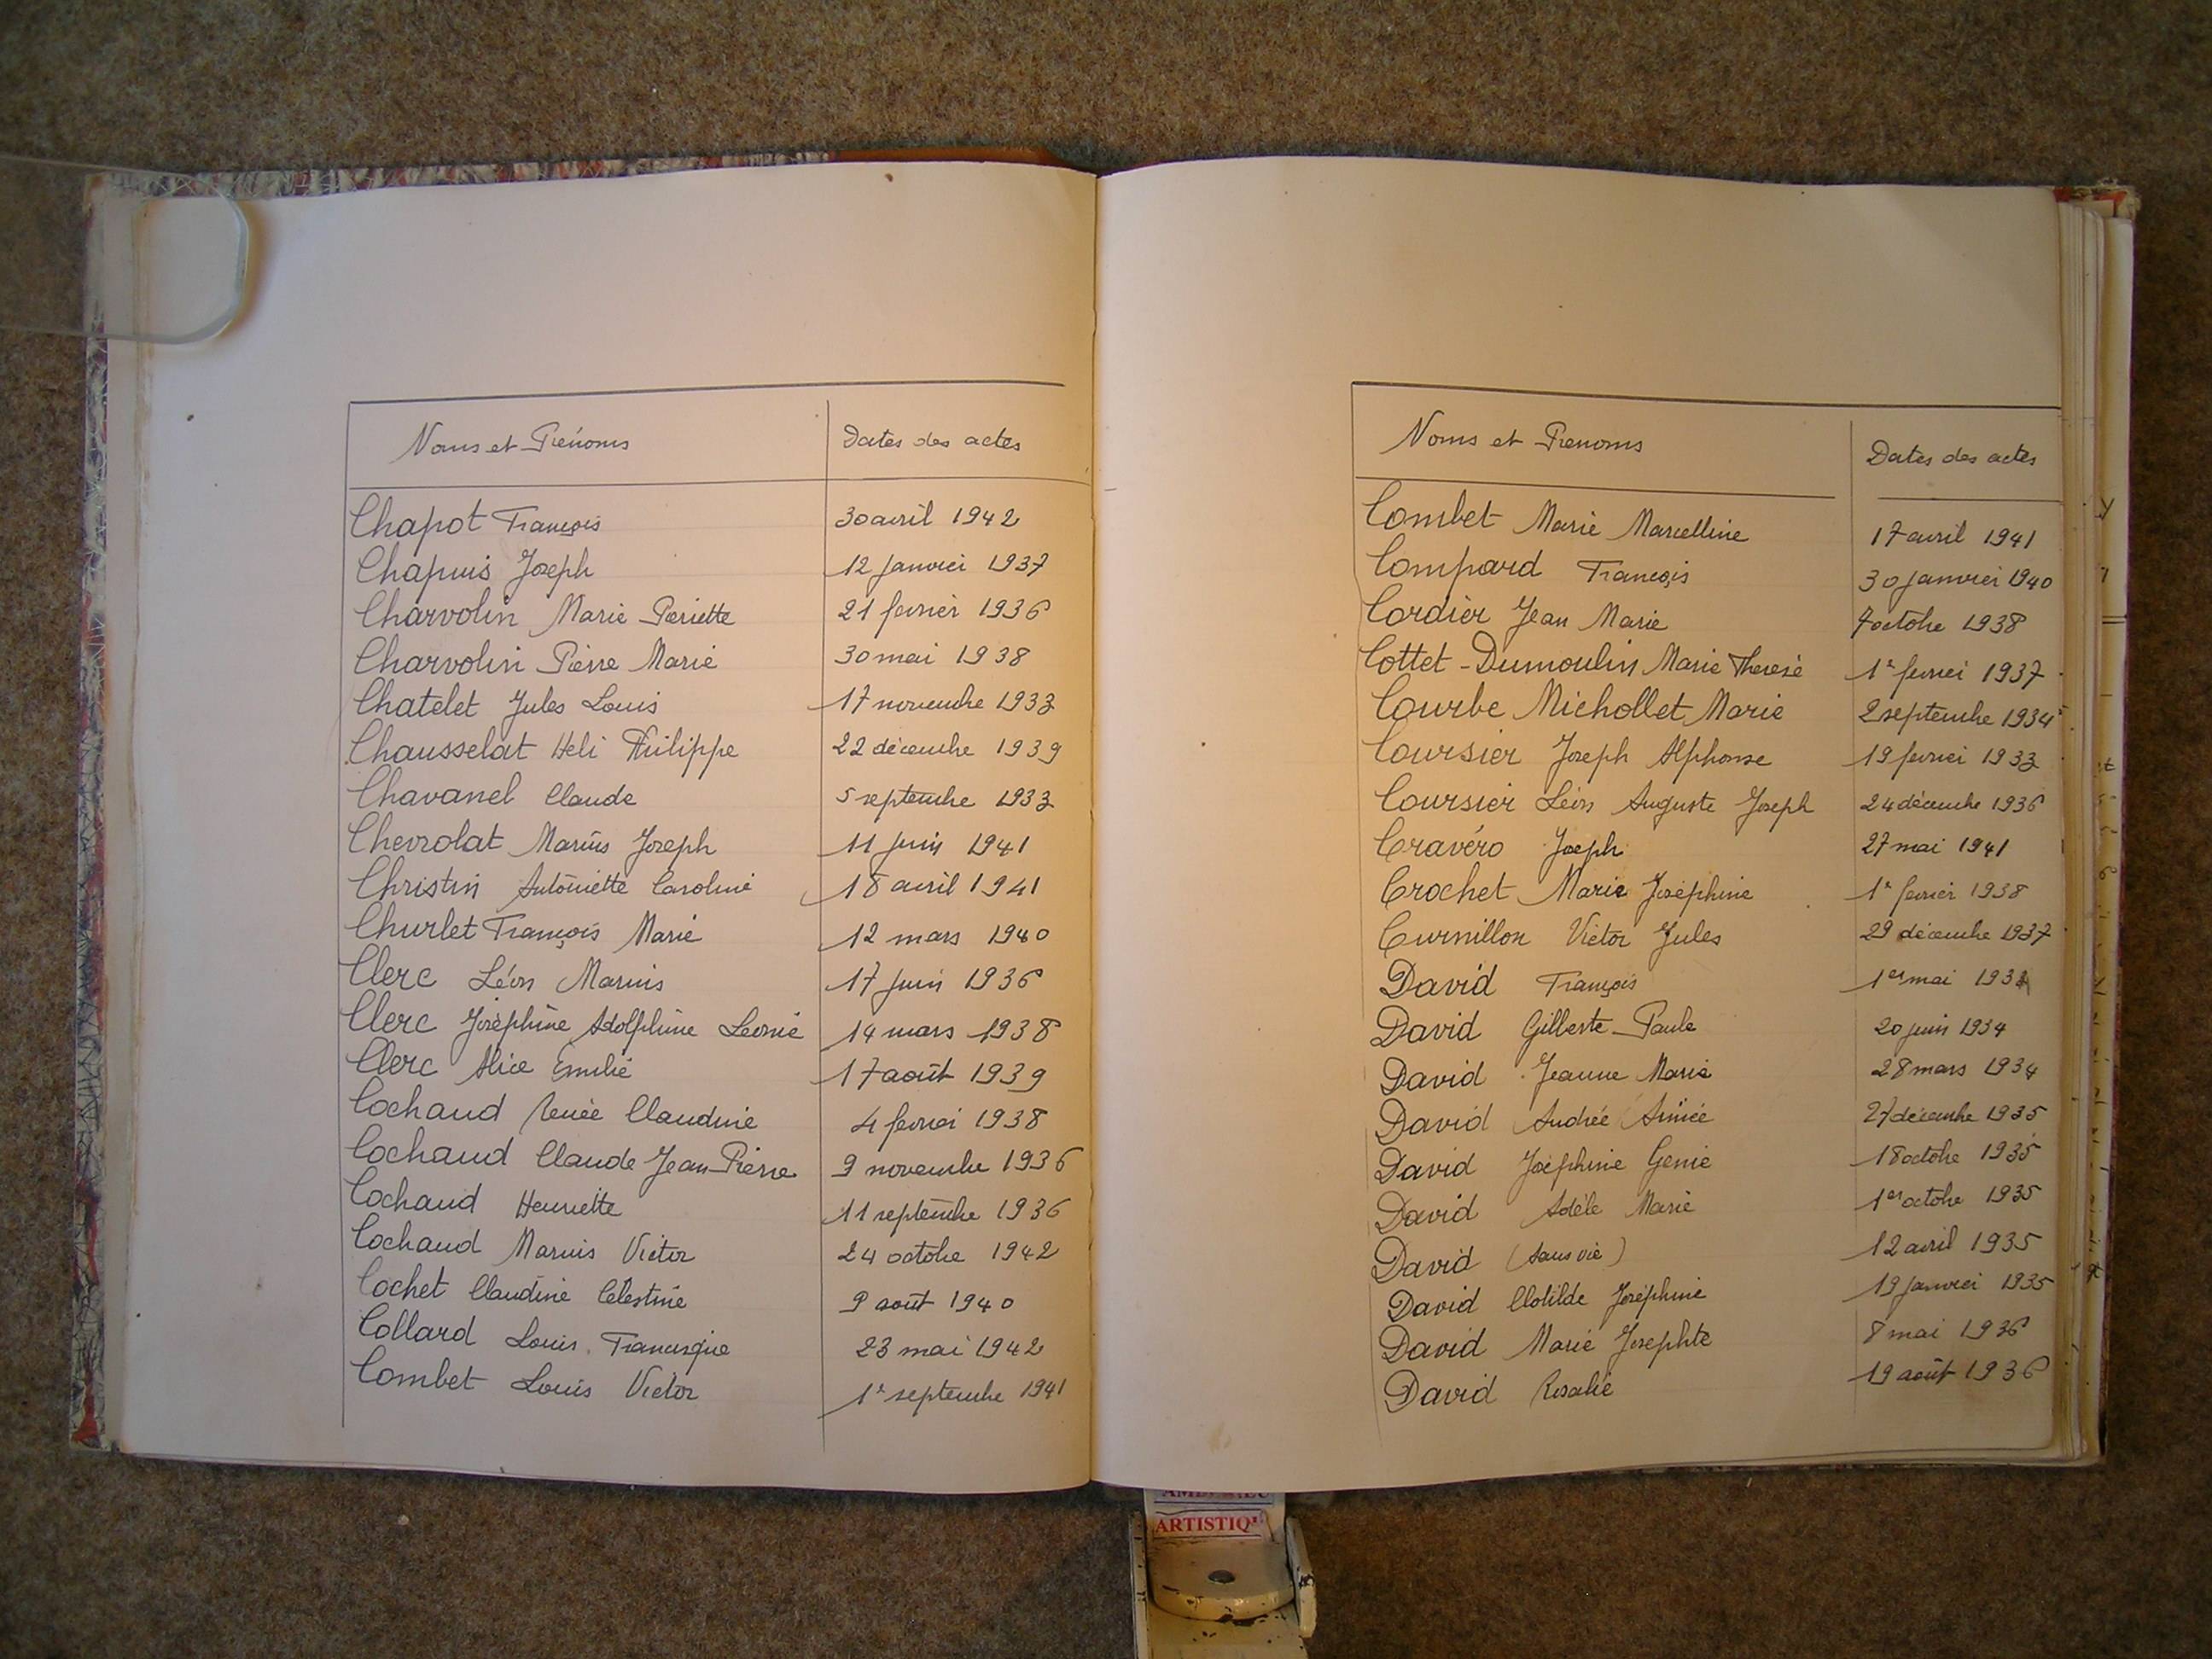 Noms et Prénoms Dates des actes
Chapot François 30 avril 1942
Chapuis Joseph 12 janvier 1937
Charvolin Marie Pierrette 21 fevrier 1936
Charvolin Pierre Marie 30 mai 1938
Chatelet Jules Louis 17 novembre 1933
Chausselat Heli Philippe 22 décembre 1939
Chavanel Claude 5 septembre 1933
Chevrolat Marius Joseph 11 juin 1941
Christin Antoinette Caroline 18 avril 1941
Churlet François Marie 12 mars 1940
Clerc Léon Marius 17 juin 1936
Clerc Joséphine Adolphine Leonie 14 mars 1938
Clerc Alice Emilie 17 août 1939
Cochaud Renée Claudine 4 fevrier 1938
Cochaud Claude Jean-Pierre 9 novembre 1936
Cochaud Henriette 11 septembre 1936
Cochaud Marius Victor 24 octobre 1942
Cochet Claudine Célestine 9 août 1940
Collard Louis Francisque 23 mai 1942
Combet Louis Victor 1er septembre 1941
Noms et Prenoms Dates des actes
Combet Marie Marcelline 17 avril 1941
Compard François 30 janvier 1940
Cordier Jean Marie 7 octobre 1938
Cottet-Dumoulin Marie Therese 1er fevrier 1937
Courbe Michollet Marie 2 septembre 1934
Coursier Joseph Alphonse 19 fevrier 1933
Coursier Léon Auguste Joseph 24 décembre 1936
Cravéro Joseph 27 mai 1941
Crochet Marie Joséphine 1er fevrier 1938
Curnillon Victor Jules 29 décembre 1937
David François 1er mai
David Gilberte Paule 20 juin 1934
David Jeanne Marie 28 mars 1934
David Andrée Aimée 27 décembre 1935
David Joséphine Genie 18 octobre 1935
David Adèle Marie 1er octobre 1935
David (sans vie) 12 avril 1935
David Clotilde Joséphine 19 janvier 1935
David Marie Josephte 8 mai 1936
David Rosalie 19 août 1936
ARTISTIQ